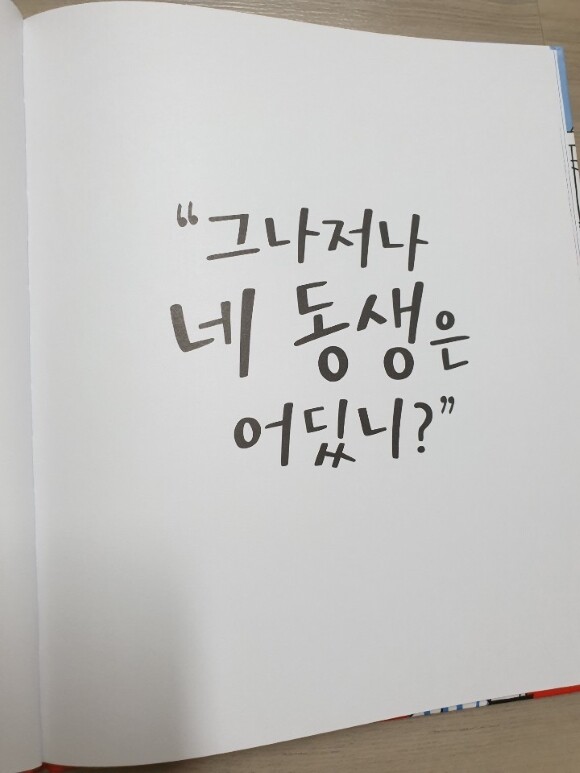 “그나저나
네 동생은
어딨니?”